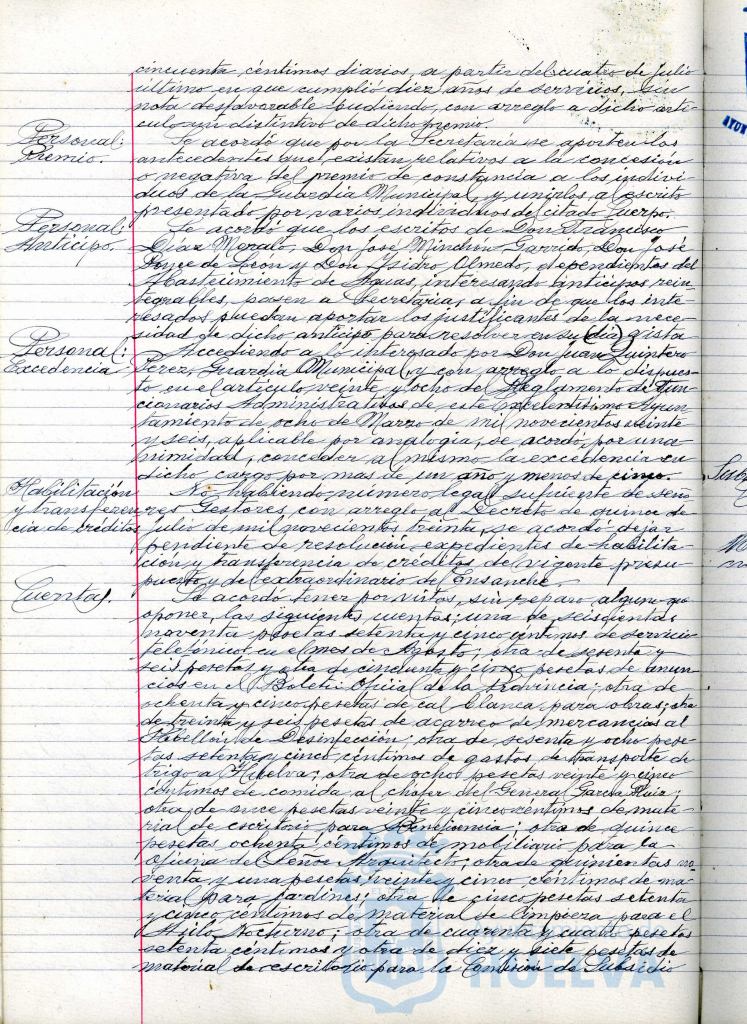 cincuenta céntimos diarios, a partir del cuatro de Julio
último en que cumplió diez años de servicios, sin
nota desfavorable pudiendo, con arreglo a dicho artí-
culo un distintivo de dicho premio.
Personal: Se acordó que por la Secretaría se aporten los
Premio. antecedentes que existan relativos a la concesión
o negativa del premio de constancia a los indivi-
duos de la Guardia Municipal, y unirlos al escrito
presentado por varios individuos de citado Cuerpo.
Personal: Se acordó que los escritos de Don Francisco
Anticipo. Díaz Moralo, Don José Minchón Garrido, Don José
Ponce de León y Don Isidro Olmedo, dependientes del
Abastecimiento de Aguas, interesando anticipos rein-
tegrables, pasen a Secretaría, a fin de que los inte-
resados puedan aportar los justificantes de la nece-
sidad de dicho anticipo para resolver en su día
Personal: Accediendo a lo interesado por Don Juan Quintero
Excedencia Perez, Guardia Municipal, y con arreglo a lo dispues-
to en el artículo veinte y ocho del Reglamento de Fun-
cionarios Administrativos de este Excelentísimo Ayun-
tamiento de ocho de Marzo de mil novecientos veinte
y seis, aplicable por analogía, se acordó, por una-
nimidad, conceder al mismo la excedencia en
dicho cargo por mas de un año y menos de cinco.
Habilitación No habiendo número legal suficiente de seño
y transferen- res Gestores, con arreglo a Decreto de quince de
cia de créditos Julio de mil novecientos treinta, se acordó dejar
pendiente de resolución expedientes de habilita-
ción y transferencia de créditos de vigente presu-
puesto y del extraordinario de Ensanche.
Cuentas. Se acordó tener por vistas, sin reparo alguno que
oponer, las siguientes cuentas: una de seiscientas
noventa pesetas setenta y cinco céntimos de servicio
telefónico, en el mes de Agosto; otra de sesenta y
seis pesetas y otra de cincuenta y cinco pesetas de anun-
cios en el Boletín Oficial de la Provincia; otra de
ochenta y cinco pesetas de cal blanca para obras; otra
de treinta y seis pesetas de acarreo de mercancías al
Pabellón de Desinfección; otra de sesenta y ocho pese-
tas setenta y cinco céntimos de gastos de transporte de
trigo a Huelva; otra de ocho pesetas veinte y cinco
céntimos de comida al chófer del General García Ruiz;
otra de once pesetas veinte y cinco céntimos de mate-
rial de escritorio para Beneficencia; otra de quince
pesetas ochenta céntimos de mobiliario para la
oficina del Señor Arquitecto; otra de quinientas no-
venta y una pesetas veinte y cinco céntimos de ma-
terial para jardines; otra de cinco pesetas setenta
y cinco céntimos de material de limpieza para el
Asilo Nocturno; otra de cuarenta y cuatro pesetas
setenta céntimos y otra de diez y siete pesetas de
material de escritorio para la Comisión de Subsidio
HUELVA